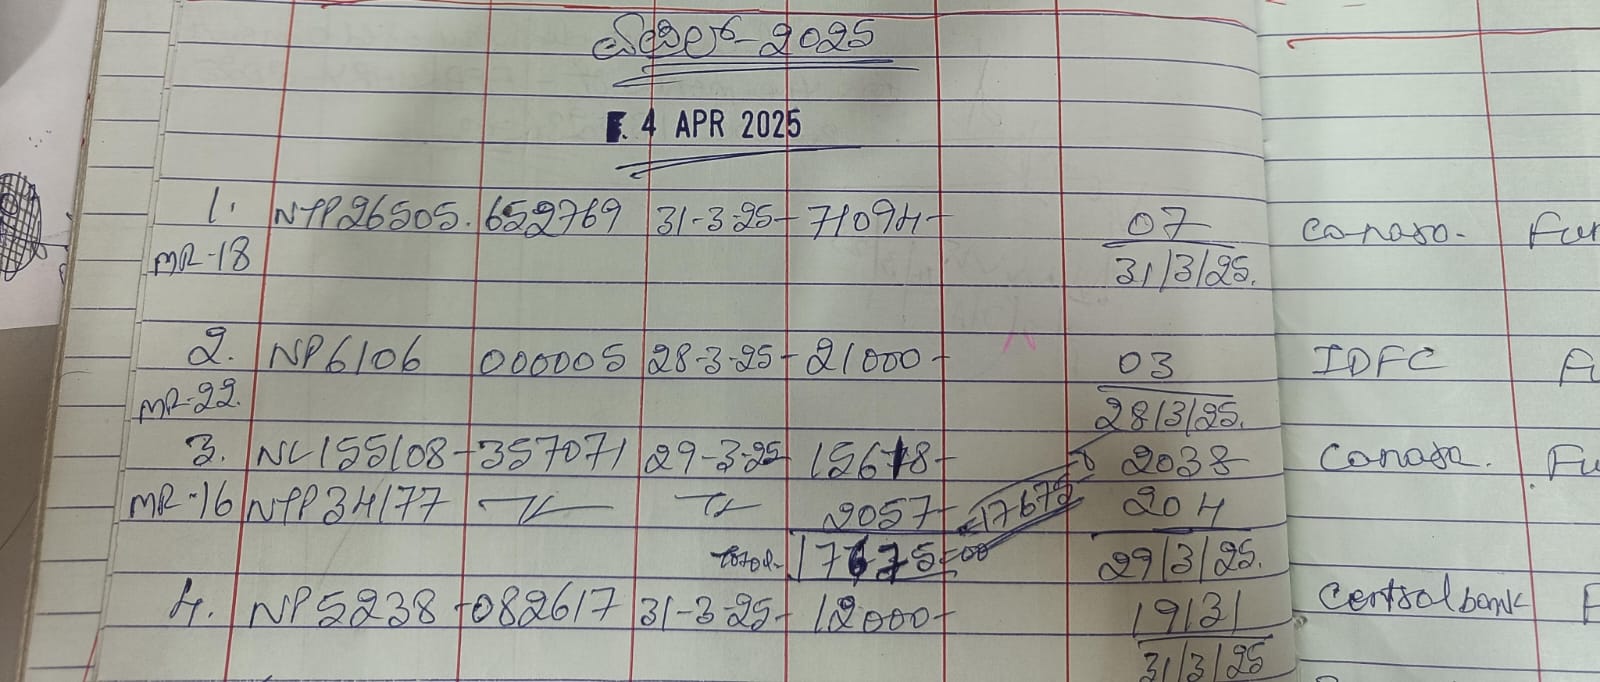 ಏಪ್ರಿಲ್-2025
4 APR 2025
1. NTP26505. 652769 31-3-25- 71094- 07 Canara.
MR-18 31/3/25.
2. NP6106 000005 28-3-25- 21000- 03 IDFC
MR-22. 28/3/25.
3. NL155108- 357071 29-3-25 15618- 2038 Canara.
MR-16 NTP34177 2057- =17675 204
total 17675=00 29/3/25.
4. NP5238 -082617 31-3-25- 12000- 19131 Centralbank
31/3/25